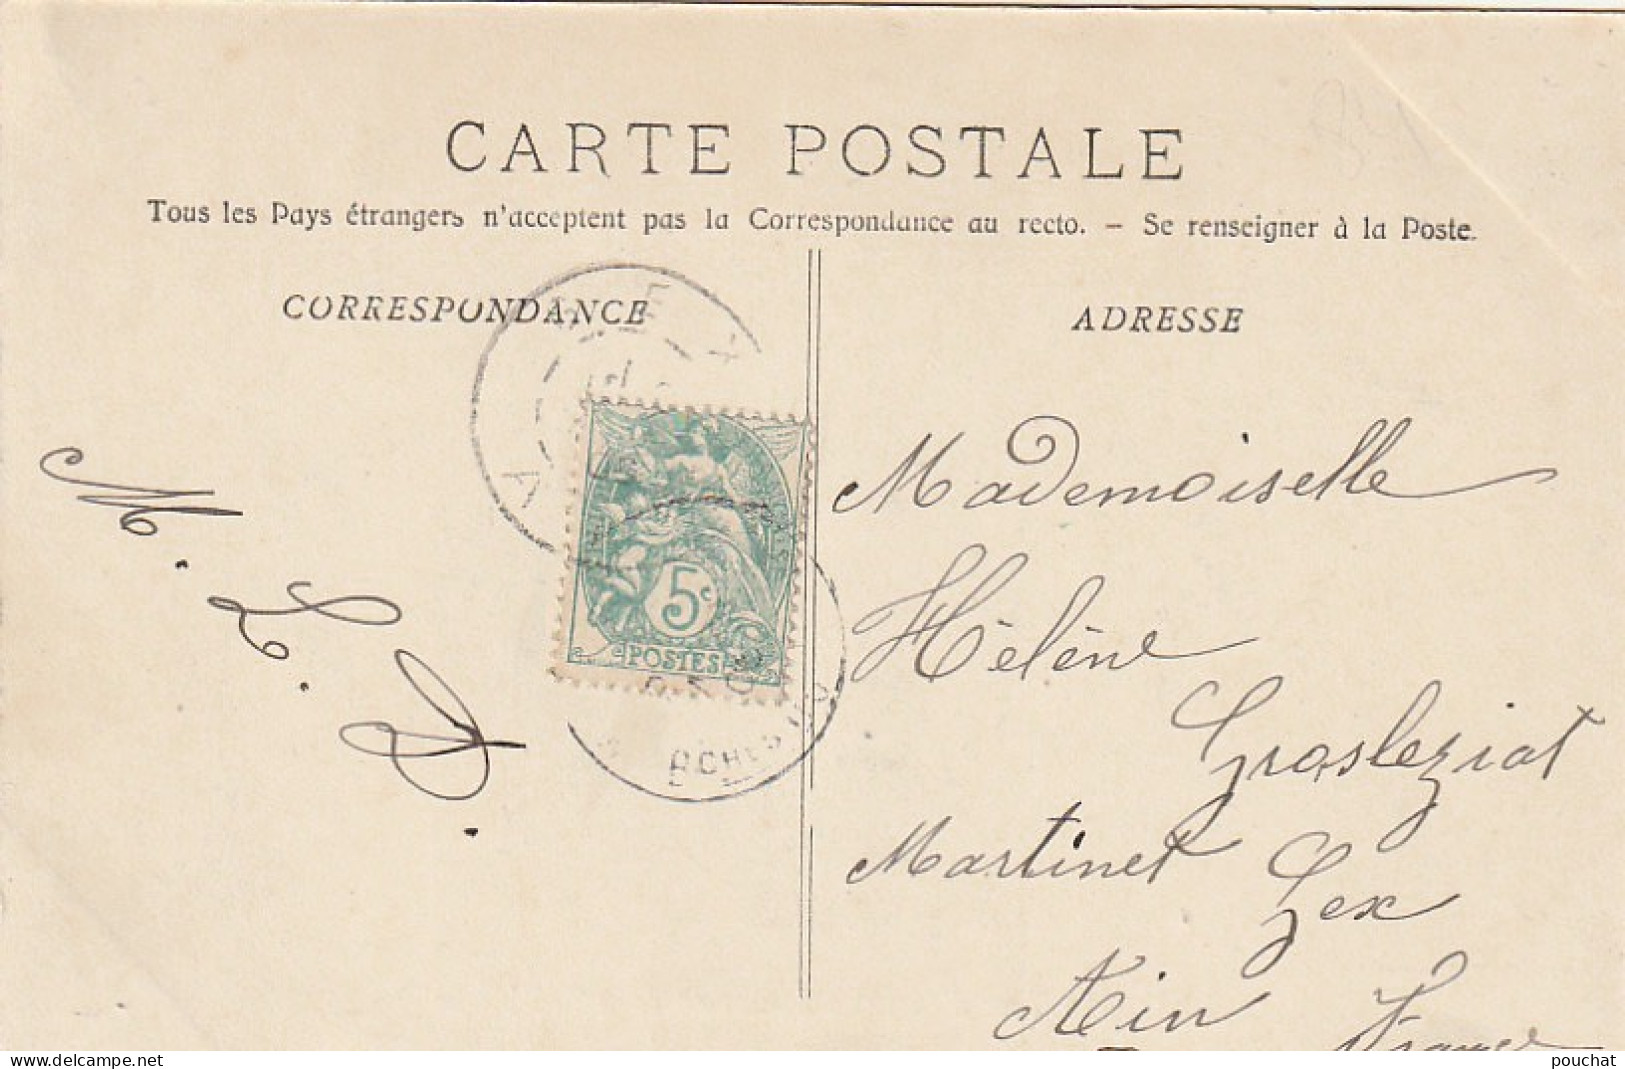 CARTE POSTALE
Tous les Pays étrangers n'acceptent pas la Correspondance au recto. – Se renseigner à la Poste.
CORRESPONDANCE
ADRESSE
M. L. P.
5c
POSTES
Mademoiselle
Hélène
Grosleziat
Martinet
Gex
Ain
France
www.delcampe.net
pouchat